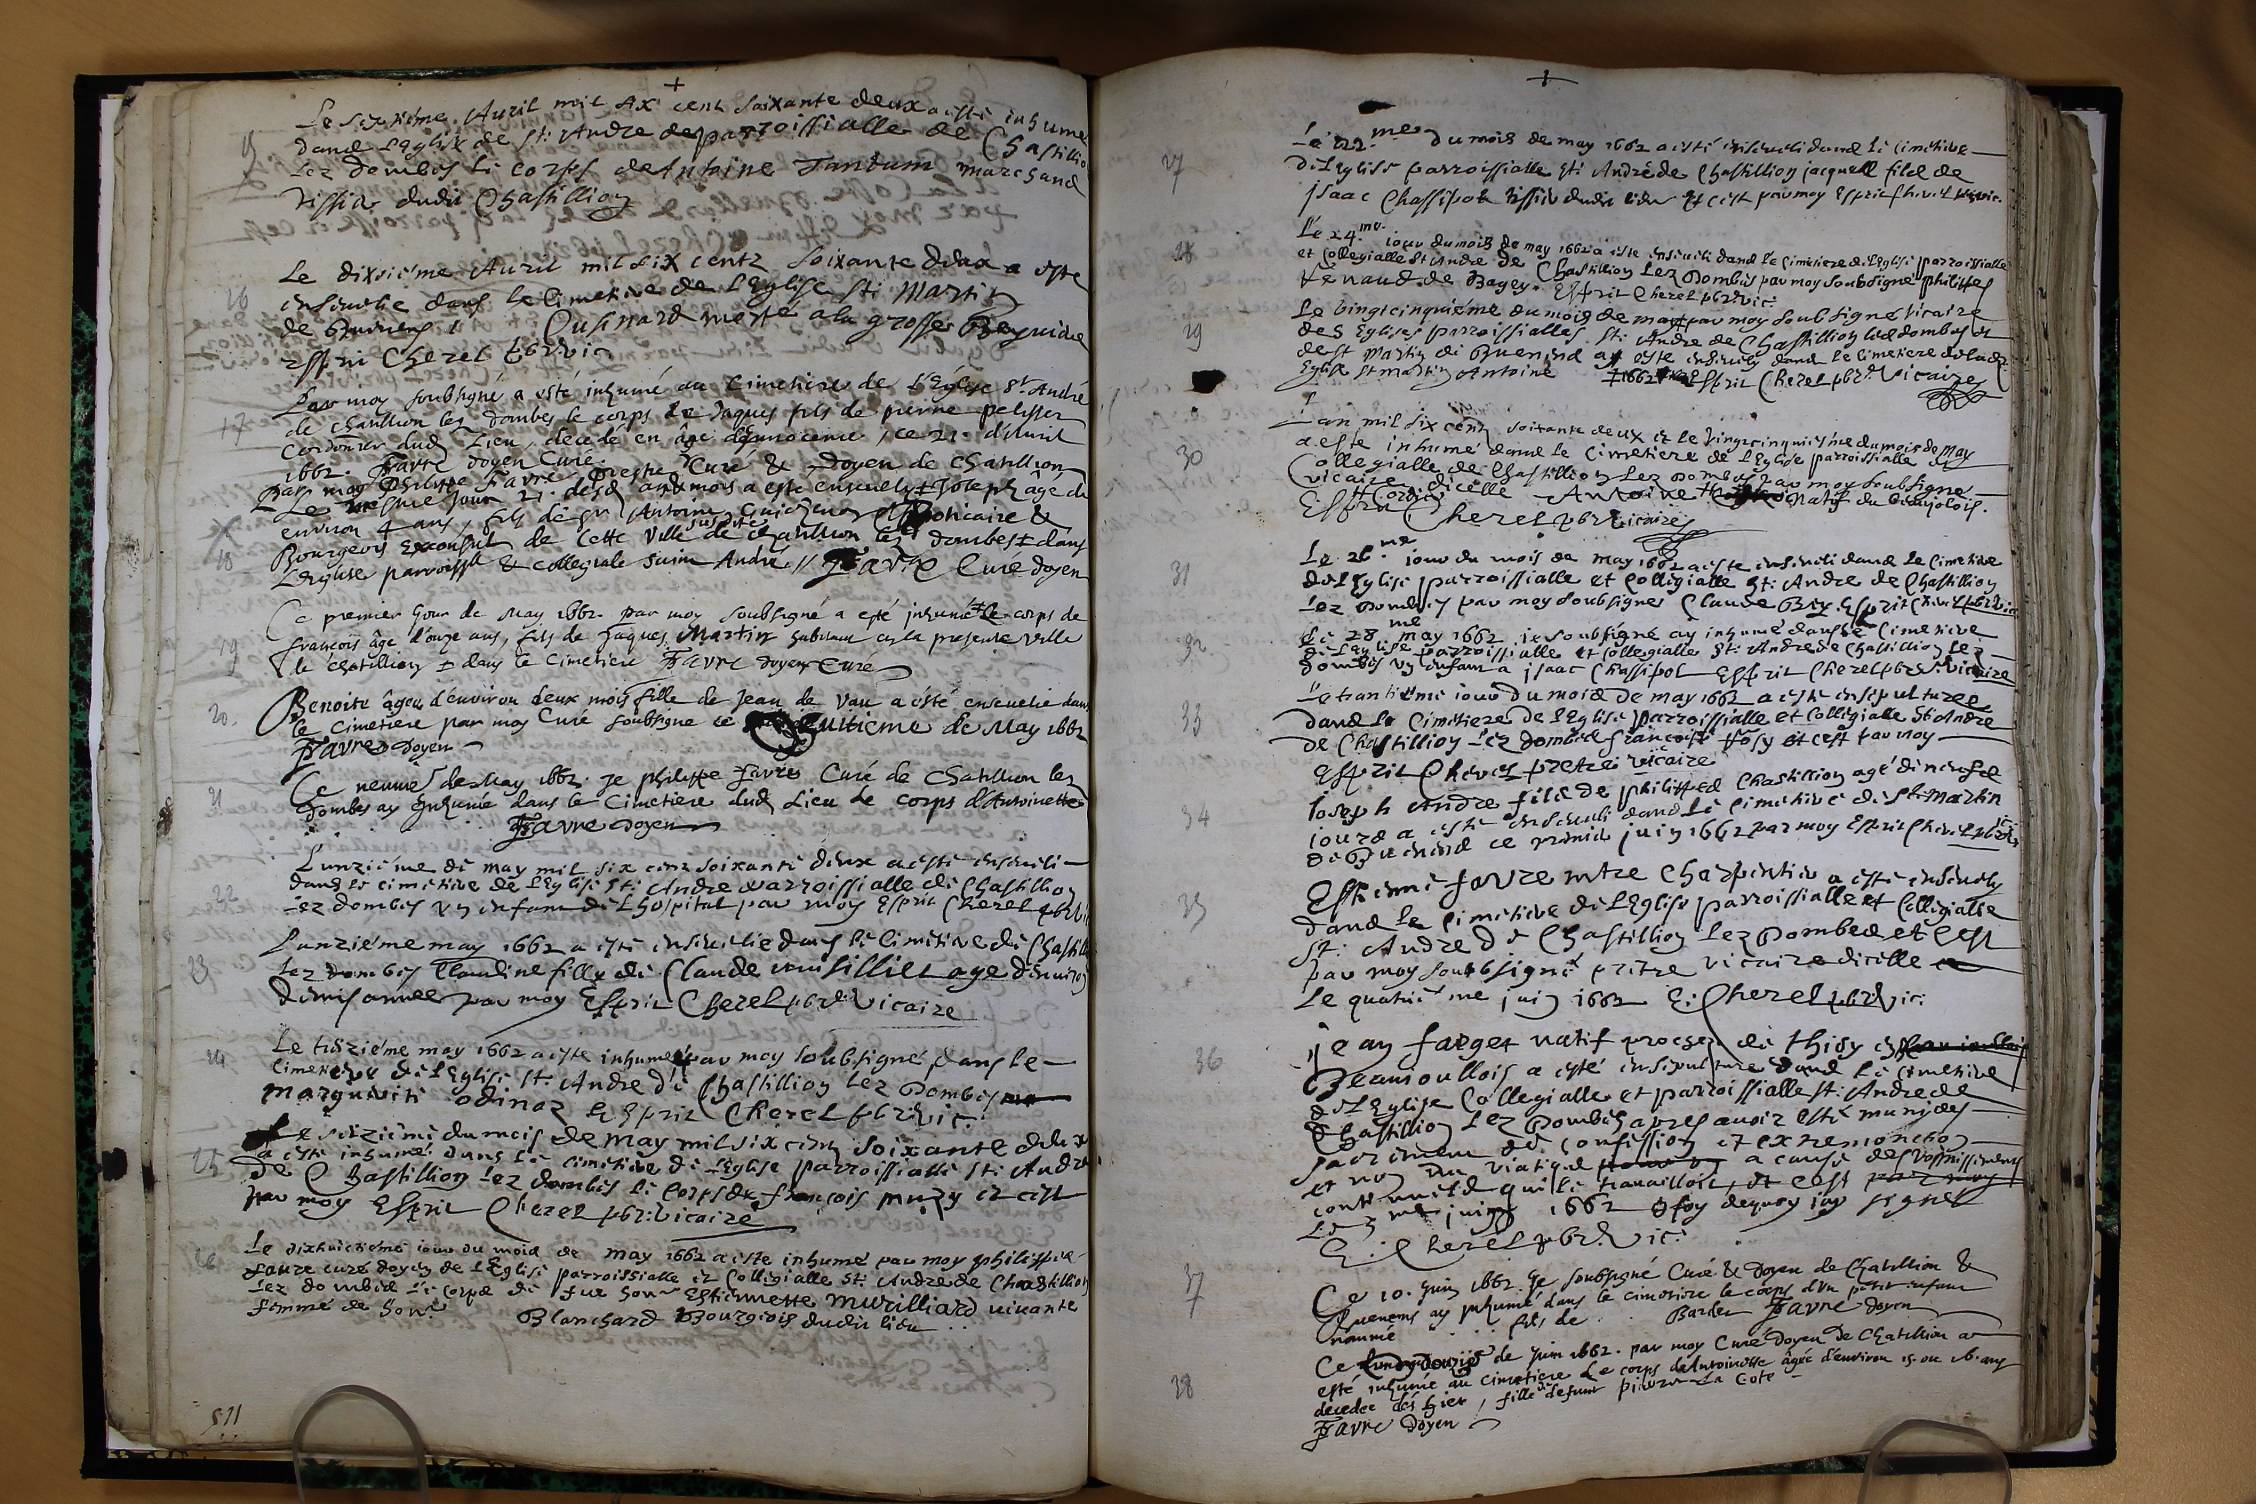 +
Le sixtiéme Auril mil six cent soixante deux a esté inhumé
15
dans L'Eglise de st: Andre de parroissialle de Chastillio
Lez dombes le corps de Antoine Tandum marchand
tissier dudit Chastillion
Le dixiéme Auril mil six centz soixante deux a este
16
enseuelie dans le Cimetiere de L'Eglise st: Martin
de Buenens
esprit Cherel pbr vic:
Par moy soubsigné a esté inhumé au Cimetiere de L'Eglise St. André
17
de chatillion les dombes le corps de Jaques fils de pierre pelisser
Cordonier dud. Lieu, decedé en âge d'innocence, ce 21. d'Auril
1662. Favre doyen Curé.
Par moy Philippe Favre prestre Curé & Doyen de Chatillion
Le mesme jour 21. desd. an & mois a esté enseuely ‡ Joseph agé de
enuiron 4 ans, fils de sr. Antoine Apoticaire &
18
Bourgeois Exconsul de Cette ville de chatillion les dombes ‡ dans
L'Eglise parroisslle & collegiale Saint André // Favre Curé doyen
Ce premier jour de May 1662. par moy soubsigné a esté inhumé ‡ le corps de
19
françois âgé d'onze ans, fils de Jaques Martin habitant en la presente ville
de chatillion ‡ dans le Cimetiere Favre doyen Curé
20.
Benoite âgée d'enuiron deux mois fille de Jean de Vau a esté enseuelie dans
le Cimetiere par moy Curé soubsigné ce huitieme de May 1662
Favre Doyen
Ce neuuie de May 1662. je philippe Favre Curé de Chatillion les
21
Dombes ay Inhumée dans le Cimetiere dud. Lieu le corps d'Antoinette
Favre doyen
L'unziéme de may mil six cent soixante deux a esté enseueli
22
dans le cimetiere de L'Eglise st: Andre parroissialle de Chastillion
Lez dombes un enfant de L'hospital par moy Esprit Cherel pbr vic
L'unziéme may 1662 a esté enseuelie dans le Cimetiere de Chastill
23
Lez dombes Claudine fille de Claude age d'enuiron
demis année par moy Esprit Cherel pbr: Vicaire
24
Le trizième may 1662 a esté inhumé par moy soubsigné dans le
Cimetiere de L'Eglise st: Andre de Chastillion Lez Dombes
marguerite odinaz Esprit Cherel pbr: vic:
Le seizieme du mois de may mil six cent soixante deux
25
a esté inhumé dans le cimetiere de L'Eglise parroissialle st: Andre
de Chastillion Lez dombes le Corps de françois muzy et c'est
par moy Esprit Cherel pbr: vicaire
26
Le dixhuictiéme iour du mois de may 1662 a esté inhumé par moy philippe
faure curé doyen de L'Eglise parroissialle et Collegialle st: Andre de Chastillion
Lez dombes le corps de fue hon. Estiennette Murilliard viuante
femme de hon. Blanchard Bourgeois dudit lieu
511
+
Le 22.me du mois de may 1662 a esté enseueli dans le Cimetiere
27
de L'Eglise parroissialle st: André de Chastillion jacques fils de
jsaac Chassipol tissier dudit lieu et c'est par moy Esprit Cherel vic.
Le 24.me iour du mois de may 1662 a este enseueli dans le Cimetiere de L'Eglise parroissialle
28
et Collegialle st Andre de Chastillion Lez Dombes par moy soubsigné philippes
Renaud de Bagey. Esprit Cherel pbr vic:
Le vingtcinquiéme du mois de may par moy soubsigné vicaire
29
des Eglises parroissialles st: Andre de Chastillion les dombes et
de st Martin de Buenend ay este enseuely dans le Cimetiere de lad.
Eglise st martin Antoine ‡ 1662 Esprit Cherel pbr. vicaire
L'an mil six cent soixante deux et le vingtcinquiesme du mois de May
30
a este inhumé dans le Cimetiere de L'Eglise parroissialle et
Collegialle de Chastillion Lez Dombes par moy soubsigne
vicaire dicelle Antoine natif du beaujolois.
Esprit Cherel pbr vicaire
Le 26me iour du mois de may 1662 a este enseueli dans le Cimetiere
31
de L'Eglise parroissialle et Collegialle st: Andre de Chastillion
Lez Dombes par moy soubsigné Claude Bey. Esprit Cherel pbr vic
32
Le 28 me may 1662 je soubsigné ay inhumé dans le Cimetiere
de L'Eglise parroissialle et Collegialle st: Andre de Chastillion Lez
dombes un enfant a jsaac Chassipol Esprit Cherel pbr vicaire
Le trantiéme iour du mois de may 1662 a esté ensepulturee
33
dans le Cimetiere de L'Eglise parroissialle et Collegialle St Andre
de Chastillion Lez dombes françoise et c'est par moy
Esprit Cherel prestre vicaire
Joseph Andre fils de philippes Chastillion agé de neufs
34
iours a esté enseueli dans le Cimetiere de St: Martin
de Buenend ce premier juin 1662 par moy Esprit Cherel pbr vic:
Estienne favre mtre Charpentier a esté enseuely
35
dans le Cimetiere de L'Eglise parroissialle et Collegialle
st: Andre de Chastillion Lez Dombes et c'est
par moy soubsigné prêtre vicaire dicelle
Le quatriéme juin 1662 E: Cherel pbr vic:
36
jean farget natif proche de Thisy en
Beauioullois a esté ensepulture dans le Cimetiere
de L'Eglise Collegialle et parroissialle st: Andre de
Chastillion Lez Dombes apres auoir esté muni des
sacrement de confission et extremonction
et non du viatique a cause des vomissiments
continuels qui le trauailloit, et c'est
Le me juin 1662 foy dequoy jay signé
E: Cherel pbr. vic:
37
Ce 10. Juin 1662. Je soubsigné Curé & Doyen de Chatillion &
Buenens ay inhumé dans le cimetiere le corps d'un petit enfant
nommé fils de Barder Favre doyen
Ce douzie de Juin 1662. par moy Curé Doyen de Chatillion a
38
esté inhumé au Cimetiere Le corps de Antoinette âgée d'enuiron 15. ou 16. ans
decedee dés hier, fille de defunt pierre La Cote
Favre Doyen